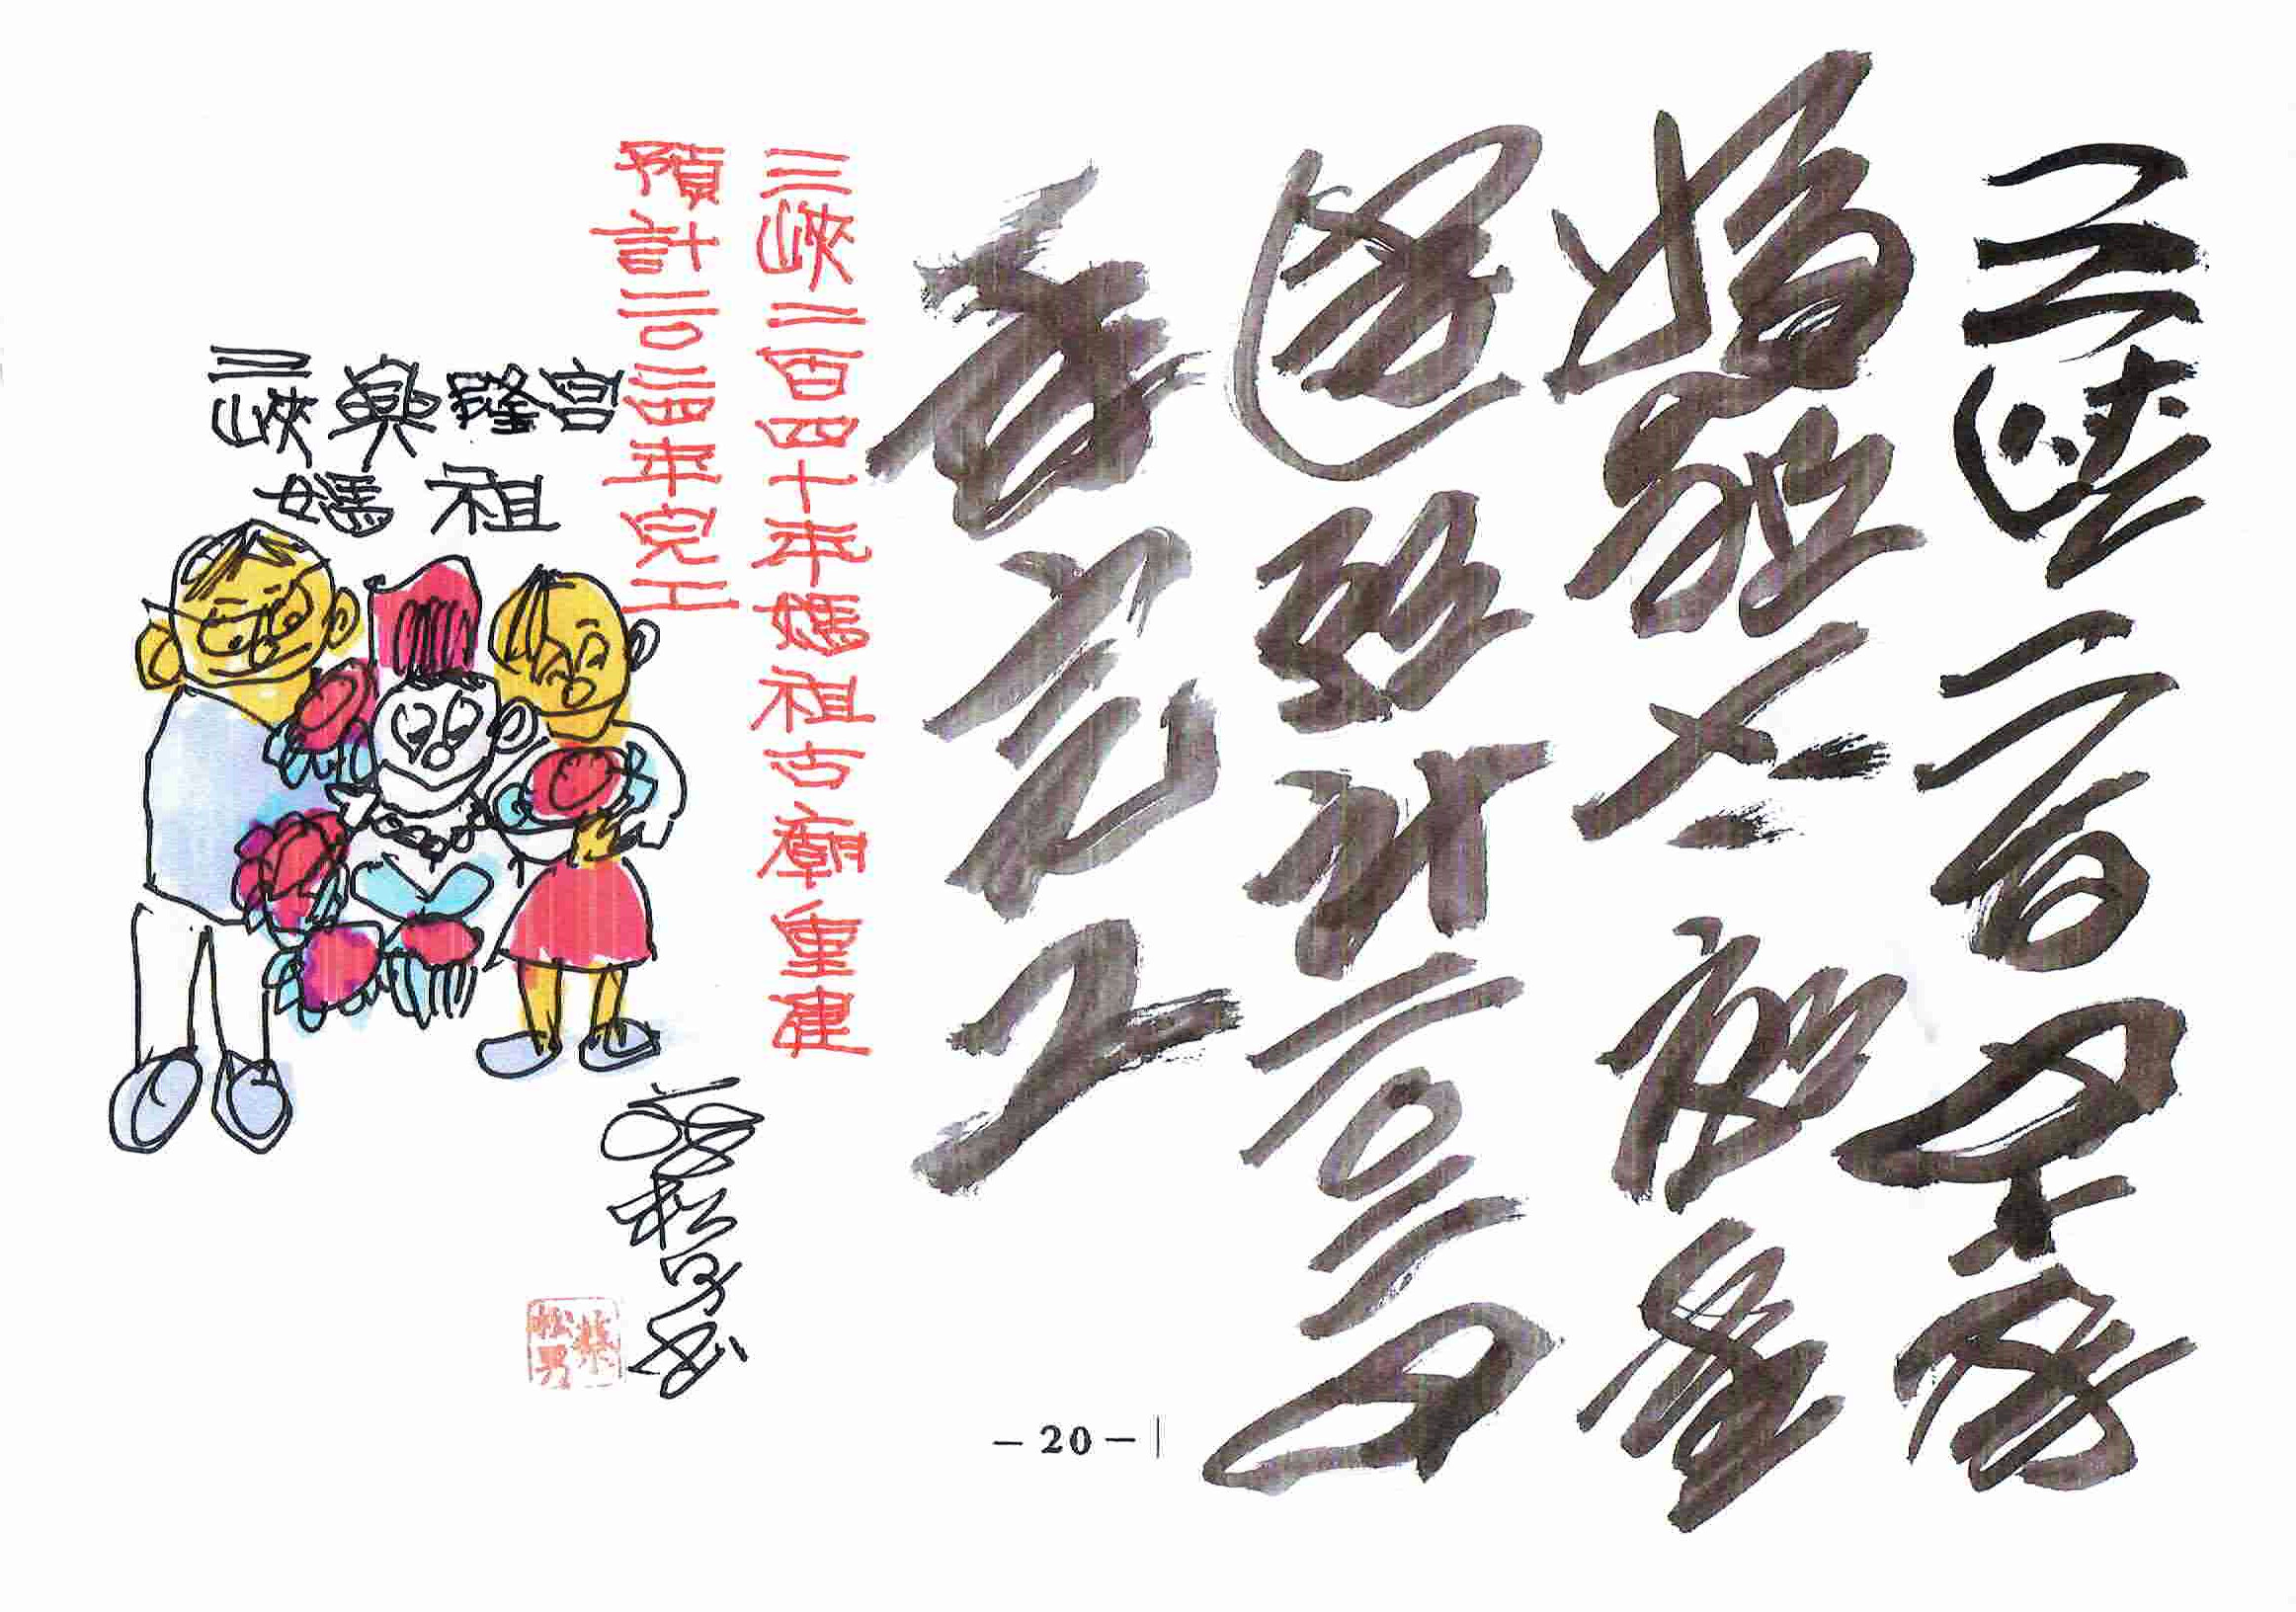 三峽二百四十年
媽祖古廟重
建預計二〇二四
年完工
三峽二百四十年媽祖古廟重建
預計二〇二四年完工
三峽興隆宮
媽祖
松男
－20－